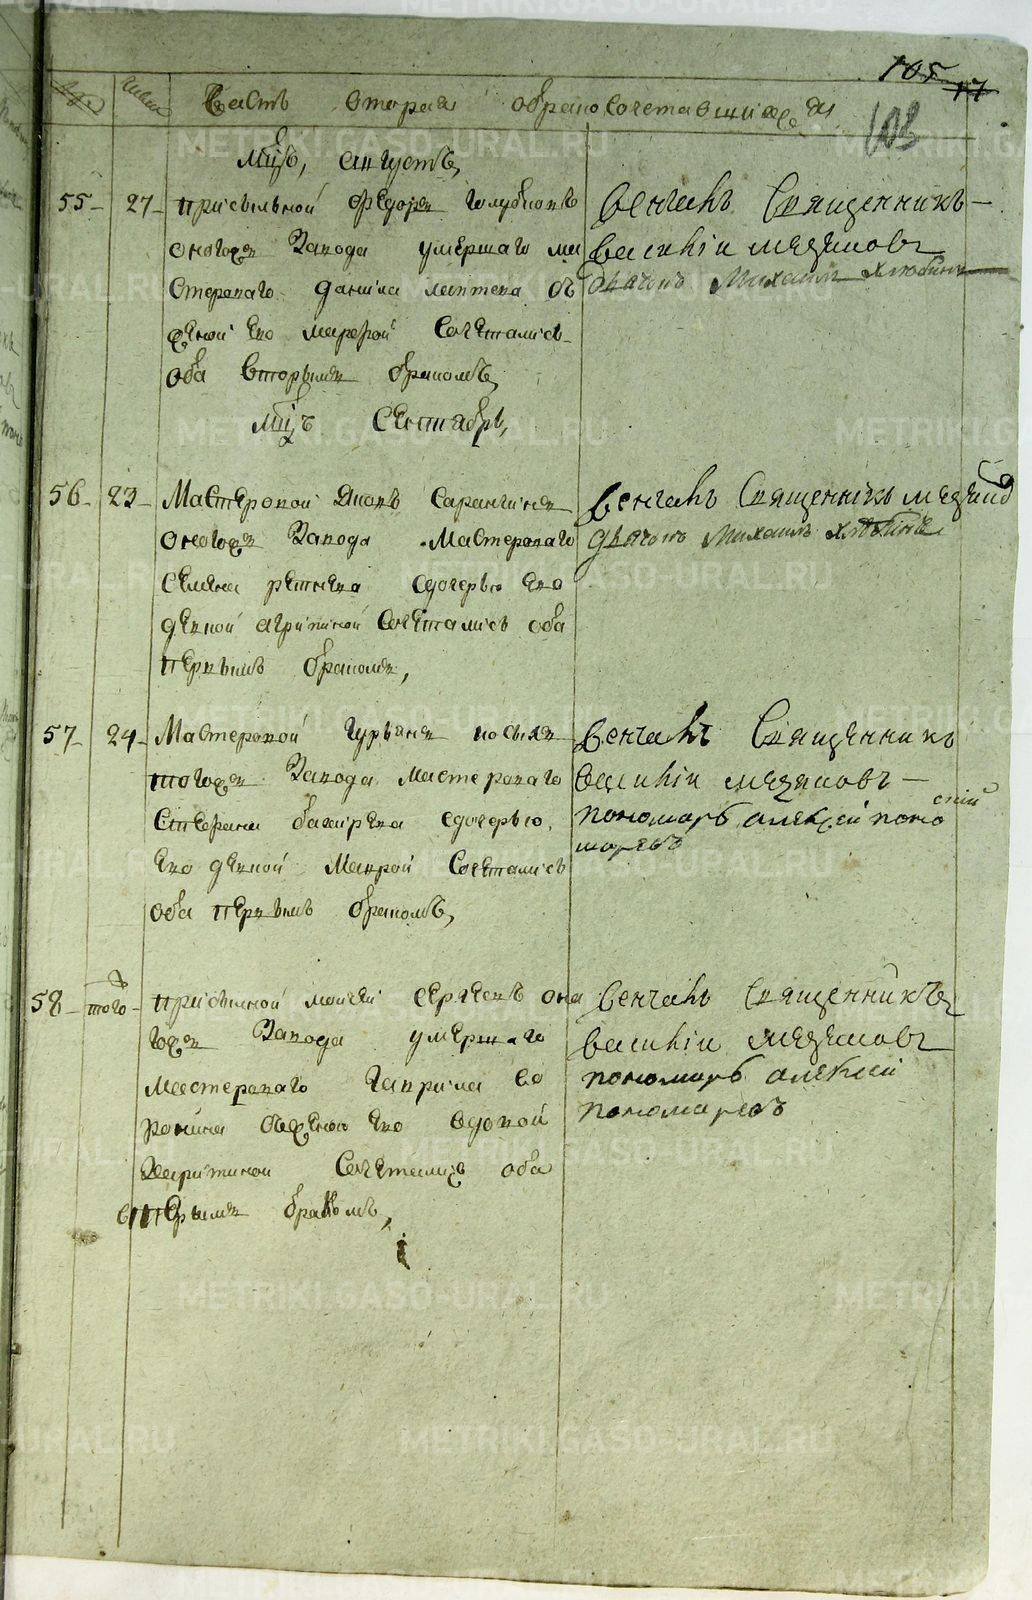 105 17
103
Часть вторая о бракосочетавшихся
Мцъ, августъ,
55 27 присыльной федоръ голубцовъ
оногожъ завода умершаго ма
стероваго данила лаптева съ
женой ево марфой сочетались
оба вторымъ бракомъ,
венчалъ Священникъ
василіи мезенцовъ
дьячокъ Михаилъ хлюбинъ
Мцъ Сентябрь,
56 23 Мастеровой Яковъ
оногожъ завода мастероваго
семена ретнева здочерью ево
девкой агрипиной сочетались оба
первымъ бракомъ,
венчалъ Священникъ
дьячокъ Михаилъ хлюбинъ
57 24 Мастеровой гурьянъ
тогожъ завода мастероваго
Стефана багирева здочерью,
ево девкой Маврой сочетались
оба первымъ бракомъ,
венчалъ Священникъ
василіи мезенцовъ
пономарь алексей поно
маревъ
58 того присыльной моисей сергеевъ оно
гожъ завода умершаго
мастероваго гаврила во
ронина зженою ево вдовой
Харитиной сочетались оба
вторымъ бракомъ,
венчалъ Священникъ
василіи мезенцовъ
пономарь алексеи
пономаревъ
METRIKI.GASO-URAL.RU